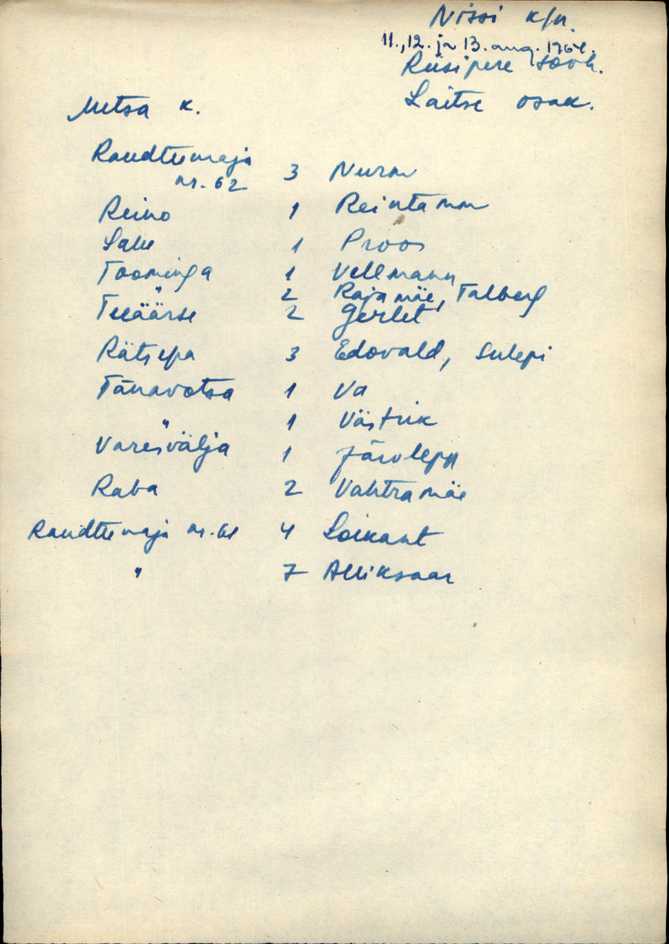 Nissi k/n.
11., 12. ja 13. aug. 1964.
Riisipere sovh.
Laitse osak.
Metsa k.
Raudteemaja
nr. 62 3 Nurm
Reino 1 Reintamm
Salu 1 Proos
Toominga 1 Vellmann
" 2 Rajamäe, Talberg
Teeäärse 2 Gerlet
Rätsepa 3 Edovald, Sulepi
Tänavotsa 1 Va
" 1 Västrik
Varesvälja 1 Järvlepp
Raba 2 Vahtramäe
Raudteemaja nr. 61 4 Loikant
" 7 Alliksaar